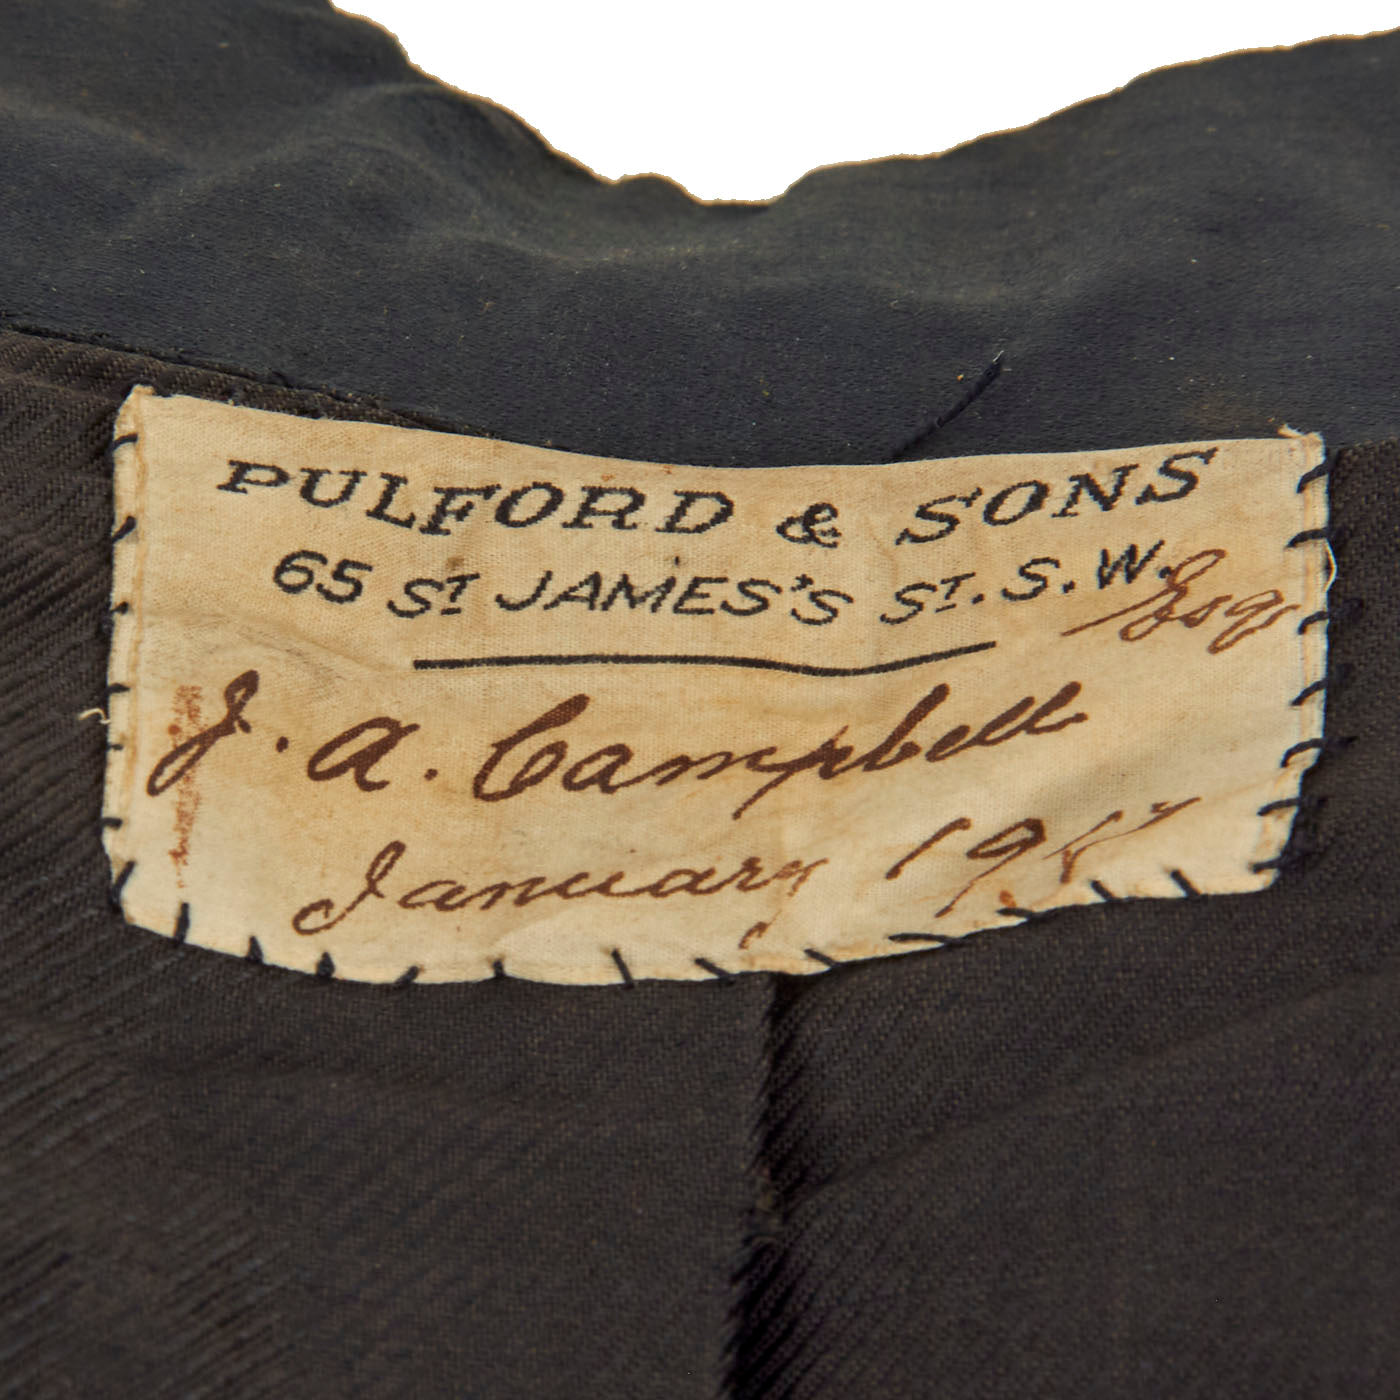 PULFORD & SONS
65 ST JAMES'S ST. S. W.
Esq
J. A. Campbell
January 1917